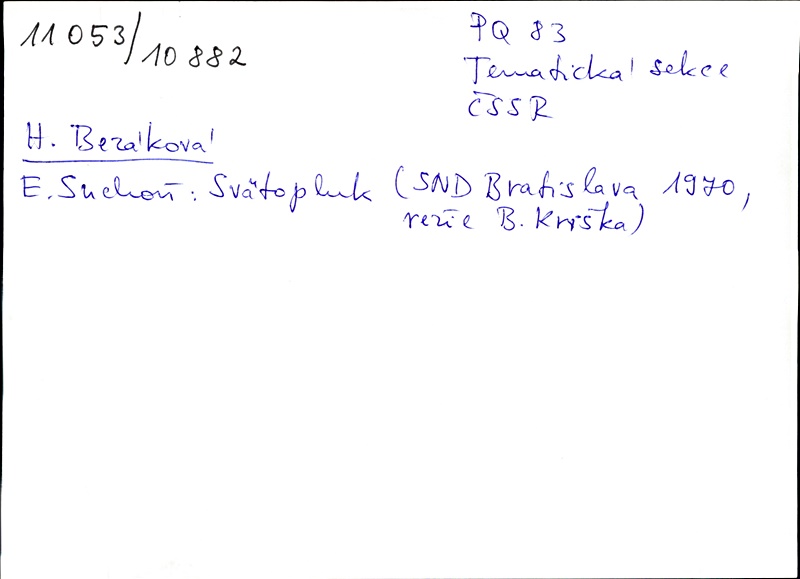 11 053/10 882
PQ 83
Tematická sekce
ČSSR
H. Bezáková
E. Suchoň: Svätopluk (SND Bratislava 1970,
režie B. Kriška)